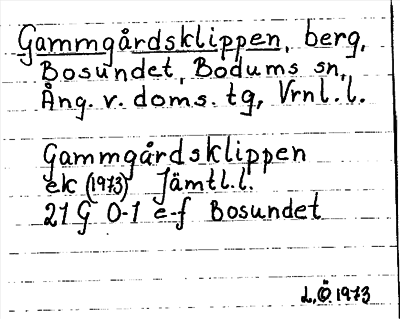 Gammgårdsklippen, berg,
Bosundet, Bodums sn,
Ång. v. doms. tg, Vrnl. l.
Gammgårdsklippen
ek (1973) Jämtl. l.
21 G 0-1 e-f Bosundet
L,Ö 1973